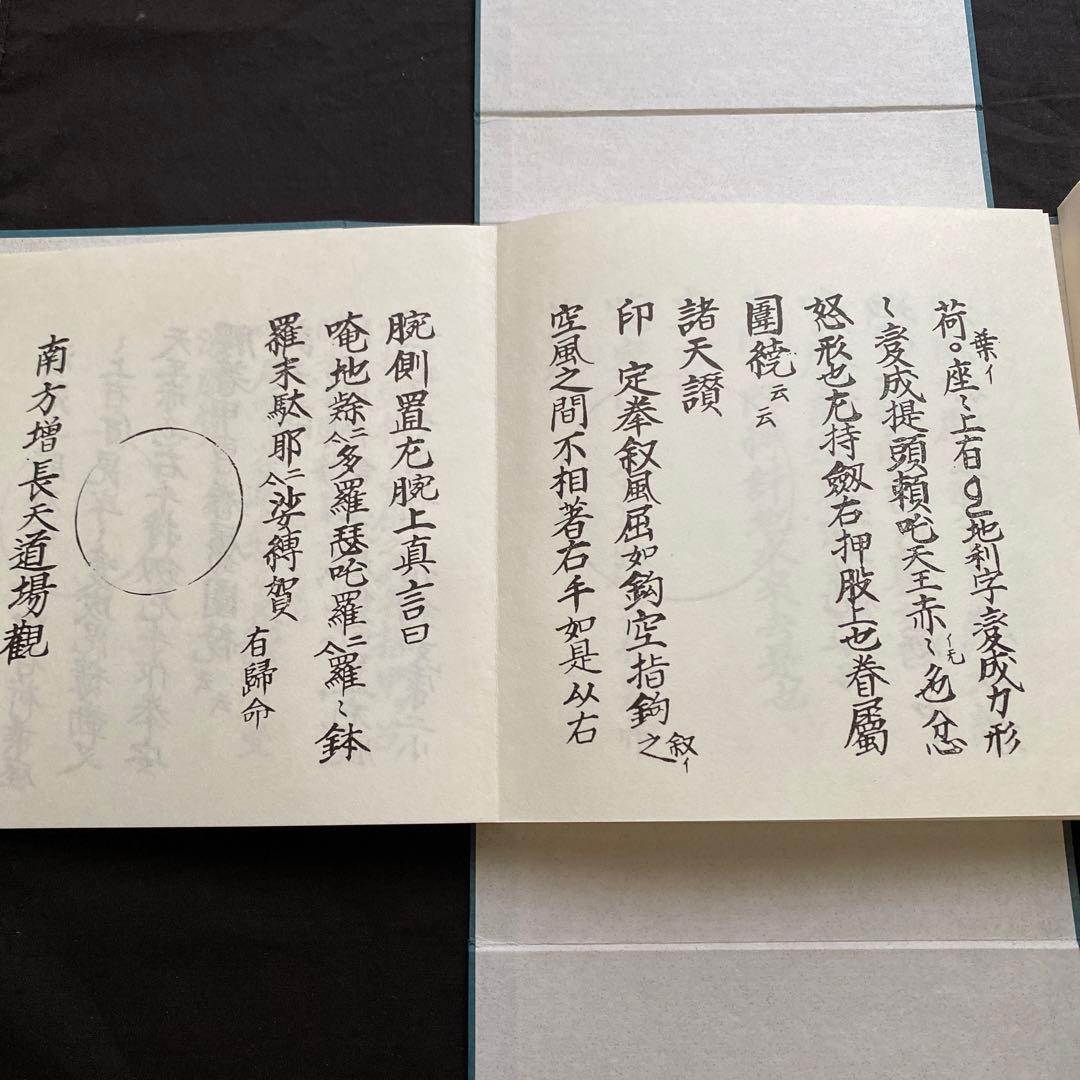 荷葉イ座〻上有 地利字変成刀形
〻変成提頭頼吒天王赤〻イ无色忿
怒形也左持劔右押股上也眷屬
圍繞云云
諸天讃
印 定拳叙風屈如鈎空指鉤之叙イ
空風之間不相著右手如是以右
腕側置左腕上真言曰
唵地𨽗二合多羅瑟吒羅二合羅〻鉢
羅末駄耶二合娑縛賀 有歸命
南方增長天道場觀